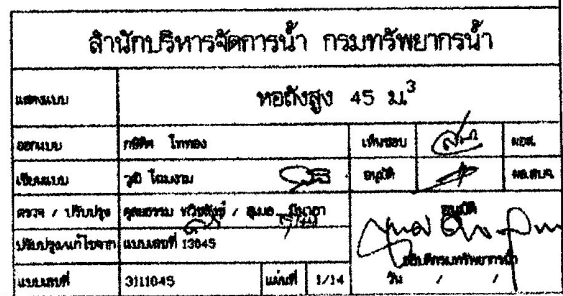 สำนักบริหารจัดการน้ำ กรมทรัพยากรน้ำ
แสดงแบบ หอถังสูง 45 ม.3
ออกแบบ โททอง เห็นชอบ ผอส.
เขียนแบบ วุฒิ โฉมงาม อนุมัติ ผอ.สบจ.
ตรวจ / ปรับปรุง / อนุมัติ
ปรับปรุง/แก้ไขจาก แบบเลขที่ 13045
อธิบดีกรมทรัพยากรน้ำ
แบบเลขที่ 3111045 แผ่นที่ 1/14 วัน / /